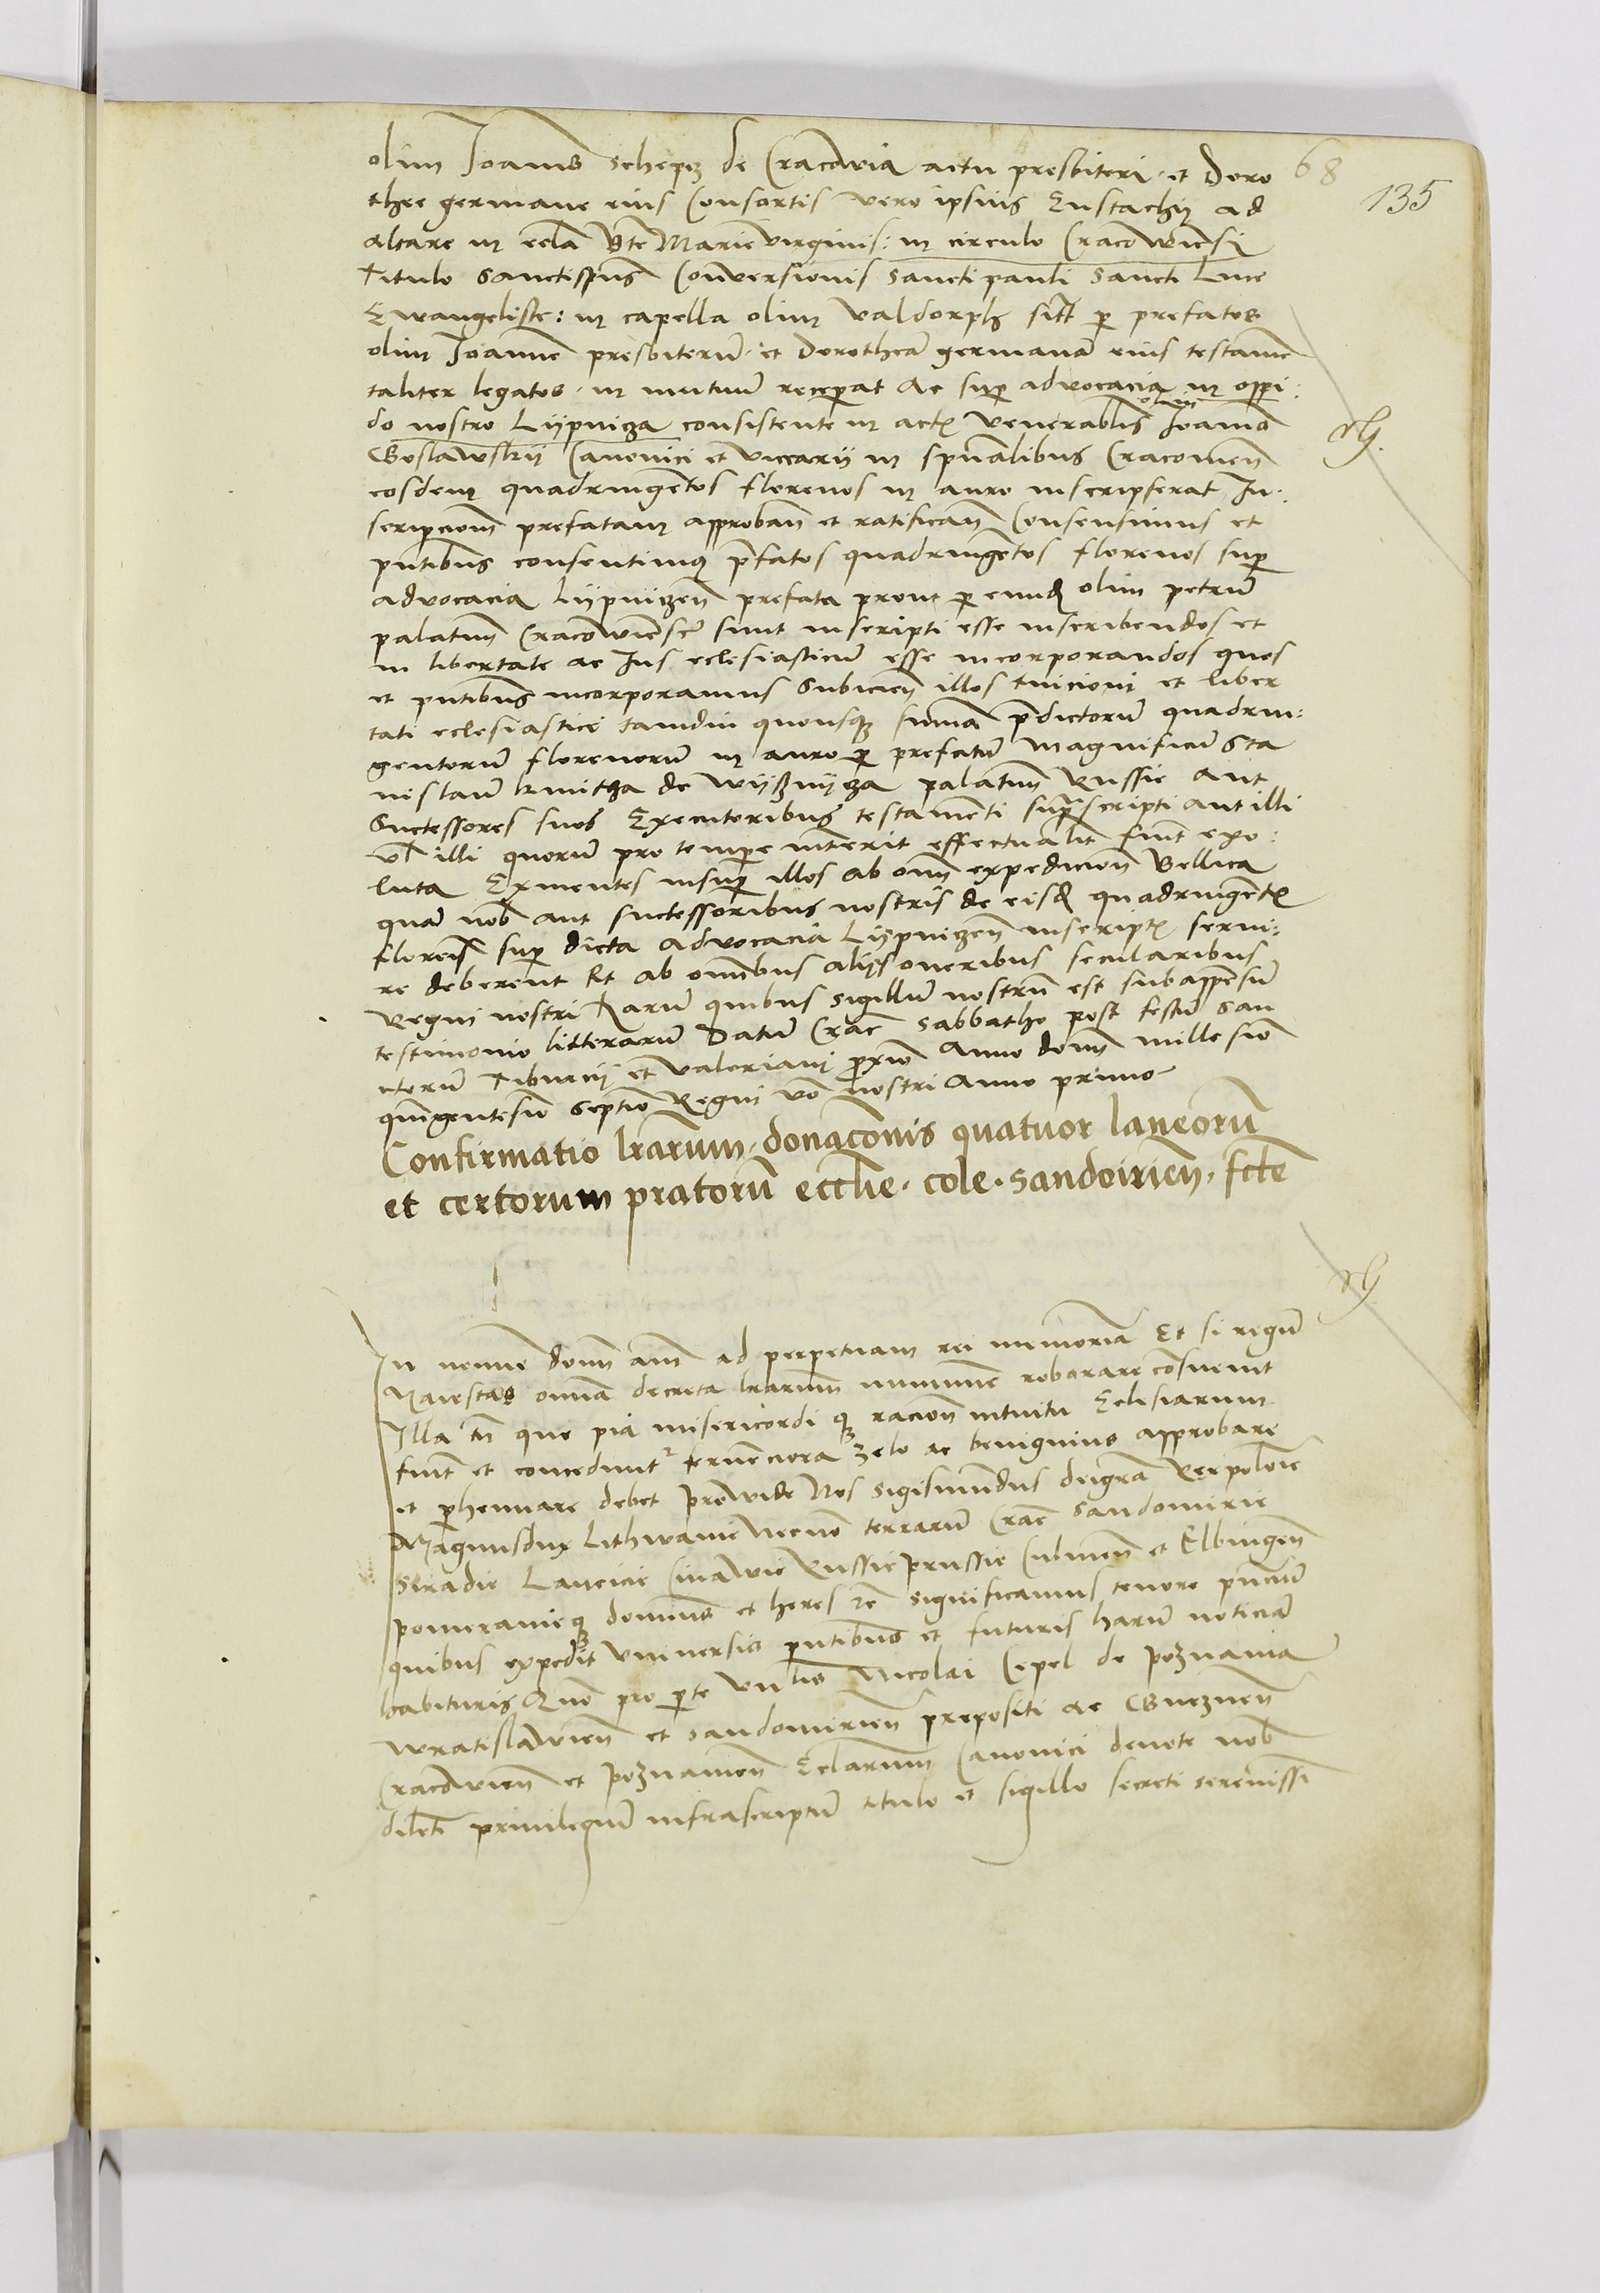 68
135
olim Joannis Schepcz de Cracovia actu presbiteri et Doro
thee germane eius Consortis vero ipsius Eustachii ad
altare in eccla Bte Marie virginis: in circulo Cracowiensi
Titulo Sanctispus Conversionis sancti pauli sancti Luce
Ewangeliste: in capella olim Valdorph sitt per prefatos
olim Joannem presbiterum et Dorotheam germanam eius testamen
taliter legatos in mutuum receperat Ac super advocacia in oppi:
do nostro Lypnicza consistente in actis venerablis olim Joannis
Goslawskij Canonici et viccarii in spūalibus Cracovien̄
eosdem quadringentos florenos in auro inscripserat In:
scripcionem prefatam approban̄ et ratifican̄ Consensimus et
pn̄tibus consentimus prefatos quadringentos florenos super
advocacia Lypniczen̄ prefata prout per eundem olim petrum
palatinum Cracowiensem sunt inscripti esse inscribendos et
in libertate ac Jus eclesiasticum esse incorporandos quos
et pn̄tibus incorporamus Subicien̄ illos tuicioni et liber
tati eclesiastice tamdiu quousque summa predictorum quadrin:
gentorum florenorum in auro per prefatum Magnificum Sta
nislaum kmitha de wysznycza palatinum Russie Aut
Successores suos Executoribus testamenti suprascripti aut illi
vel illi quorum pro tempore intererit effectualit fuit exo:
luta Eximentes insuper illos ab omni expedicione Bellica
quam nob aut successoribus nostris de eisdem quadringentis
florenis super dicta advocacia Lypniczen̄ inscriptis servi:
re deberent Et ab omnibus aliis oneribus secularibus
Regni nostri harum quibus sigillum nostrum est subappensum
testimonio litterarum Datum Crac̄ Sabbatho post festum san
ctorum Tiburcij et Valeriani proximo Anno domini millesimo
quingentesimo septimo Regni vero nostri Anno primo
Confirmatio lrarum donaconis quatuor laneorū
et certorum pratorū ecclie cole sandoirien̄ fcte
In nomine domini amen ad perpetuam rei memoriam Et si regum
Maiestas omnia decreta lrarum munimine roborare consuevit
Illa tn̄ que pia misericordi que racione intuitu Eclesiarum
fiunt et conceduntur ferventiora zelo ac benignius approbare
et perhennare debet Prowide Nos Sigismundus dei gra Rex polonie
Magnusdux Lithwanie Necnon terrarum Crac̄ Sandomirie
Siradie Lancicie Cuiawie Russie Prussie Culmen̄ et Elbingen̄
pomeranieque dominus et heres &c significamus tenore pn̄cium
quibus expedit Universis pn̄tibus et futuris harum noticiam
habituris Quo pro parte Vn̄lis Nicolai Czepel de Poznania
Wratislavien̄ et Sandomirien̄ prepositi ac Gneznen̄
Cracovien̄ et Poznanien̄ Eclarum Canonici devote nob
dilecti privilegium infrascriptum titulo et sigillo secreti serenissi